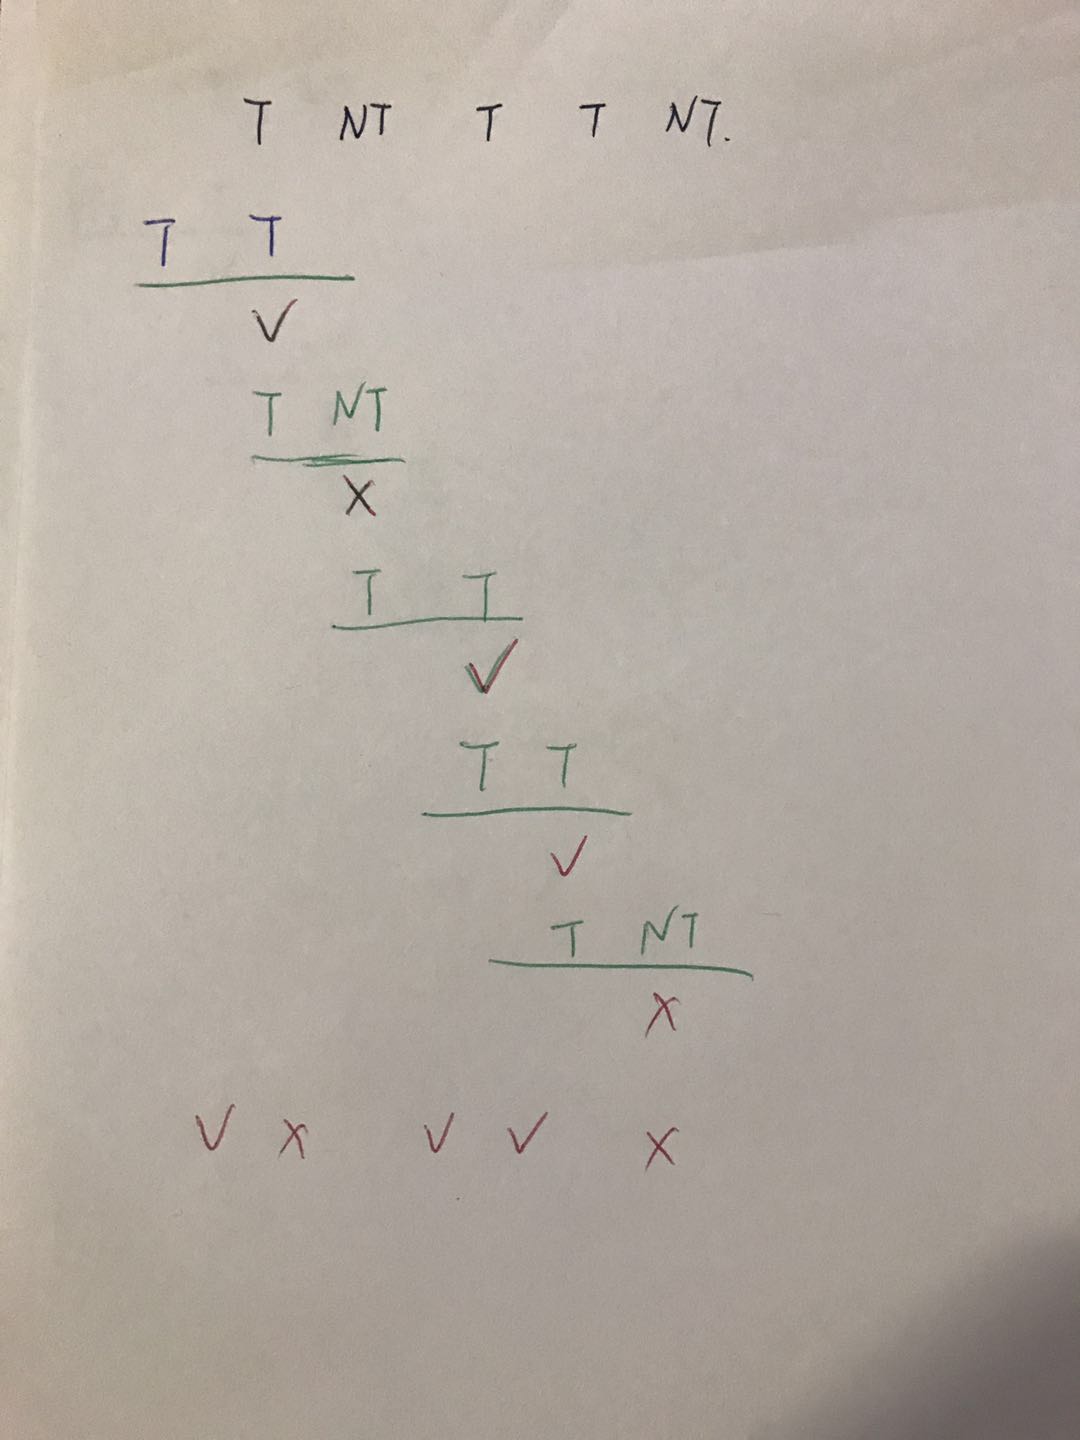 T NT T T NT.
T T
✓
T NT
X
T T
✓
T T
✓
T NT
X
✓ X ✓ ✓ X